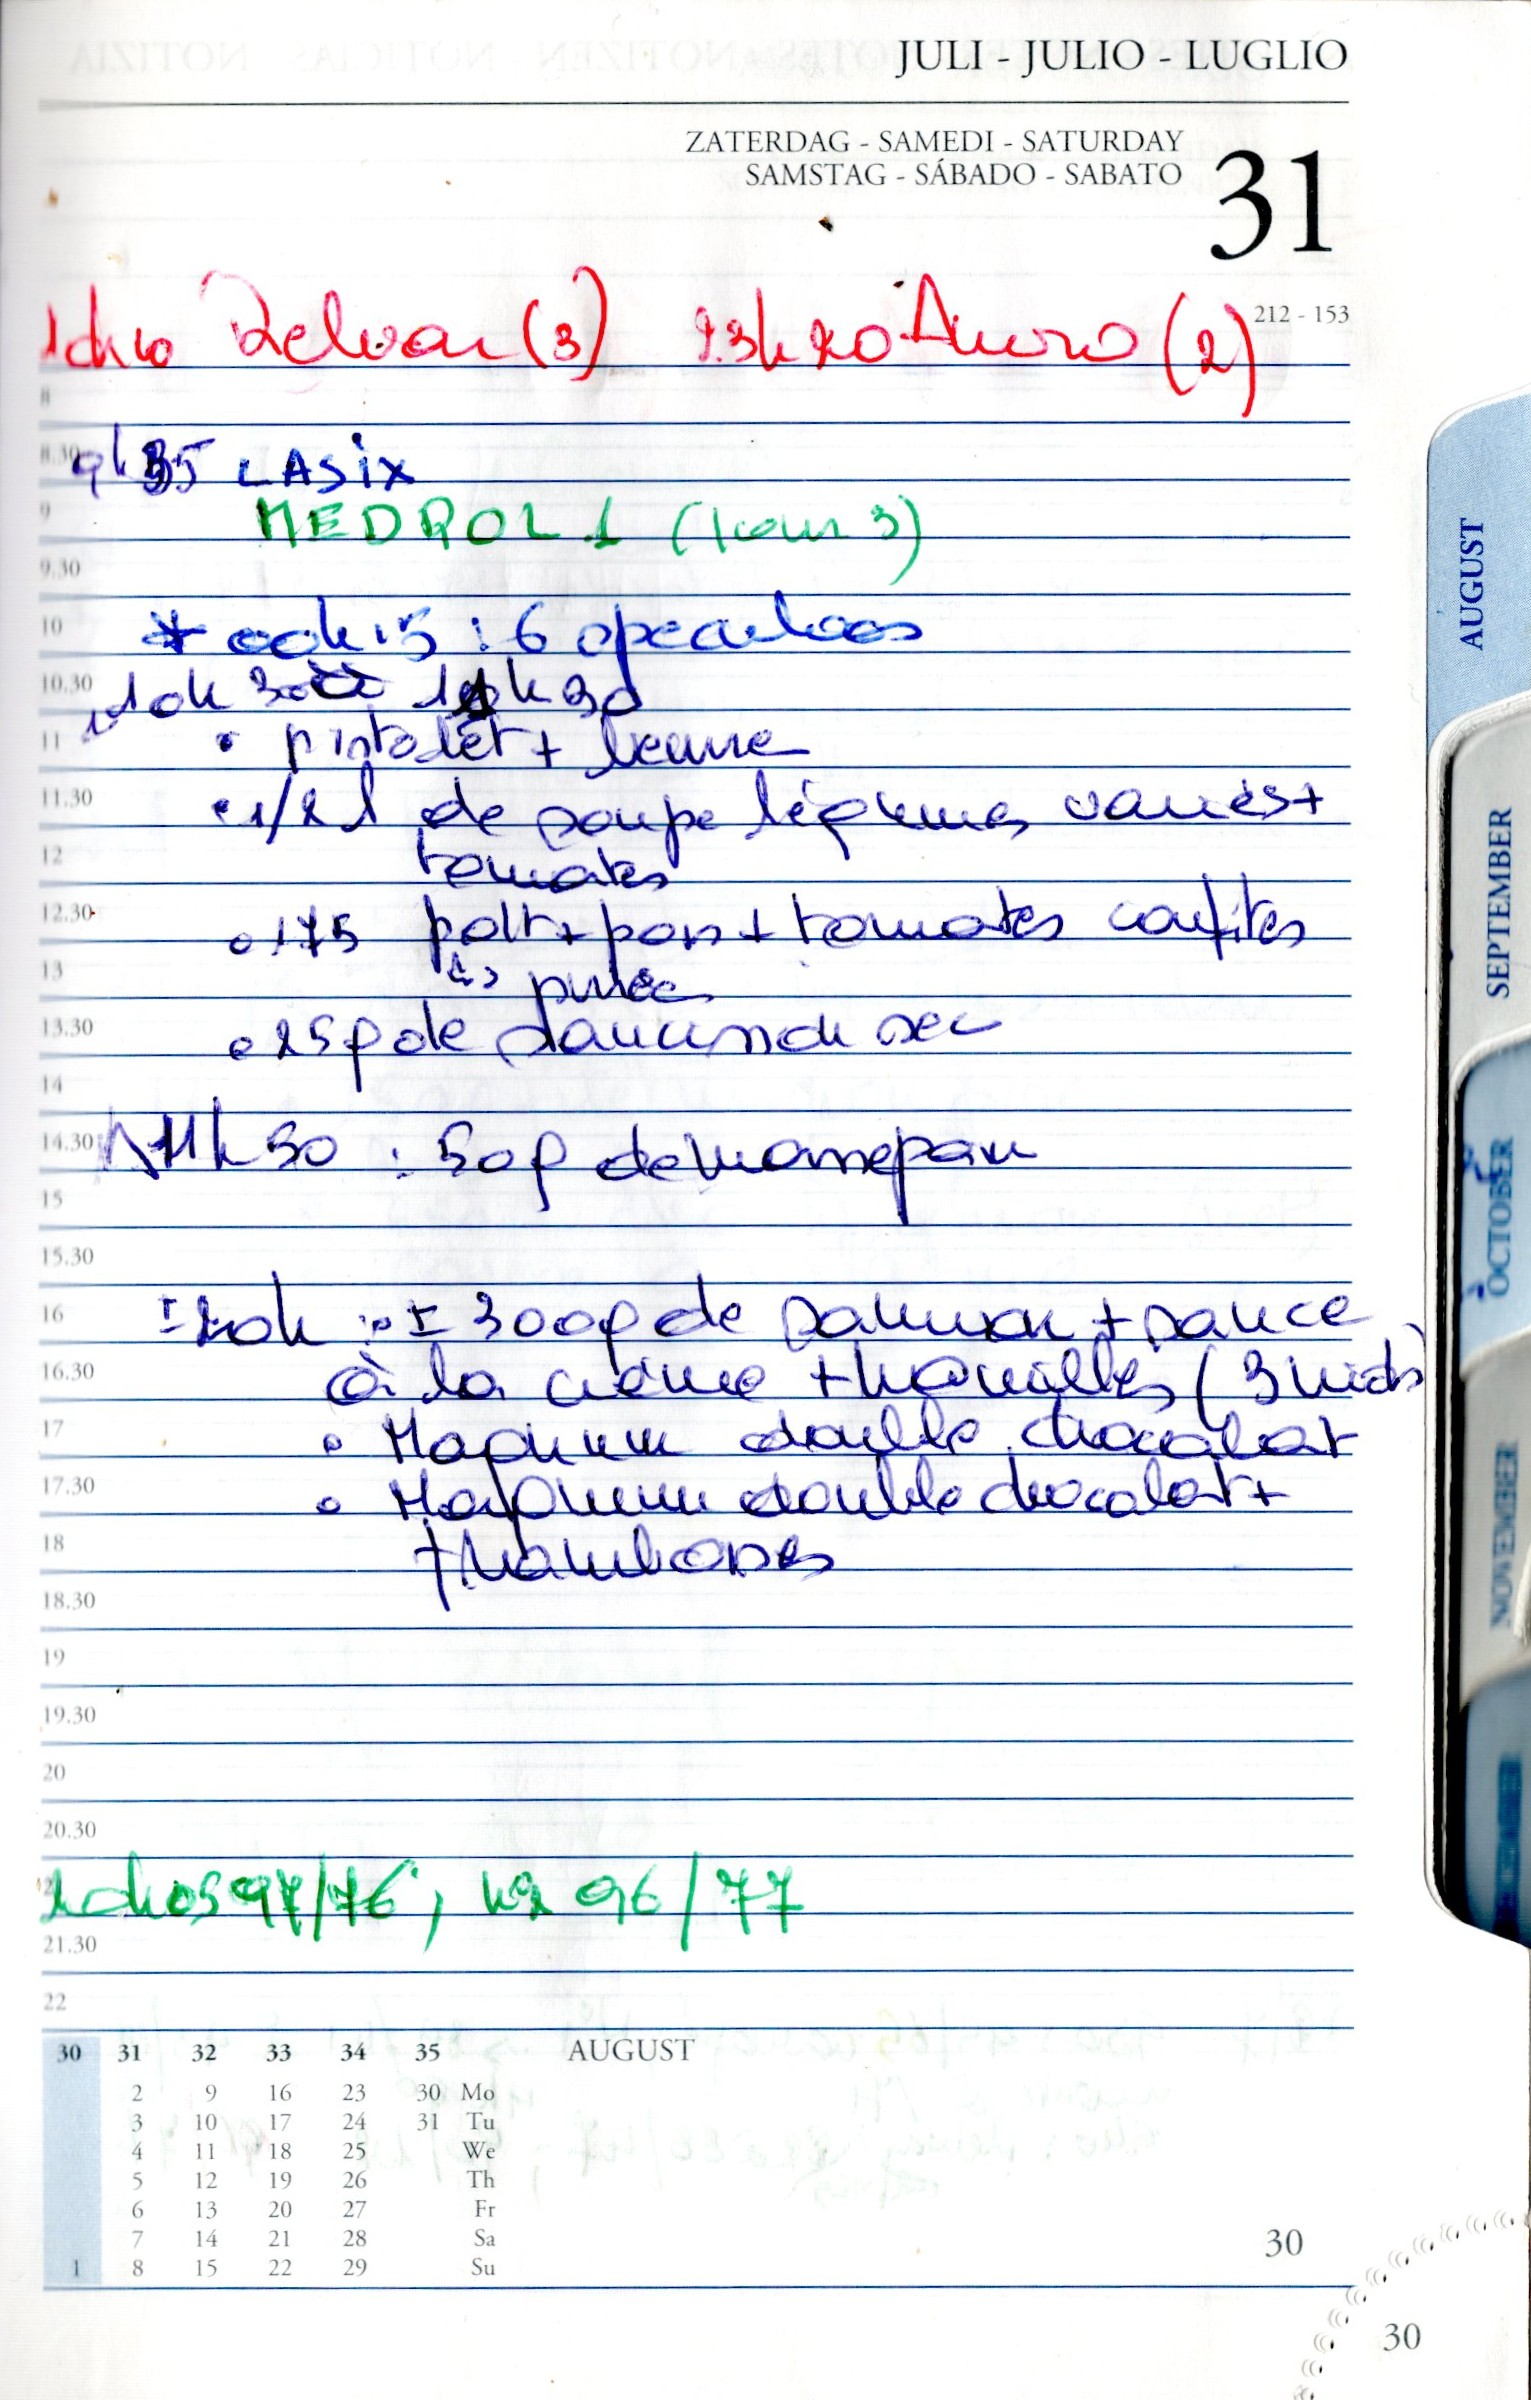 JULI - JULIO - LUGLIO
ZATERDAG - SAMEDI - SATURDAY
SAMSTAG - SÁBADO - SABATO
31
212 - 153
Relvar (3) 23h20 (2)
8
8.30 9h35 LASIX
9 MEDROL 1 (Jour 3)
9.30
10 * 00h15 : 6 speculoos
10.30 10h30 11h30
11 • pistolet + beurre
11.30 • 1/2 l de soupe légumes variés +
12 tomates
12.30 • 175 pdt + pois + tomates confites
13 purée
13.30 • 25g de saucisson sec
14
14.30 50g de massepain
15
15.30
16 ± 20h : • ± 300g de saumon + sauce
16.30 à la crème + nouilles (3 nids)
17 • Magnum double chocolat
17.30 • Magnum double chocolat +
18 framboises
18.30
19
19.30
20
20.30
97/76, 96/77
21.30
22
30 31 32 33 34 35 AUGUST
2 9 16 23 30 Mo
3 10 17 24 31 Tu
4 11 18 25 We
5 12 19 26 Th
6 13 20 27 Fr
7 14 21 28 Sa
1 8 15 22 29 Su
30
30
AUGUST
SEPTEMBER
OCTOBER
NOVEMBER